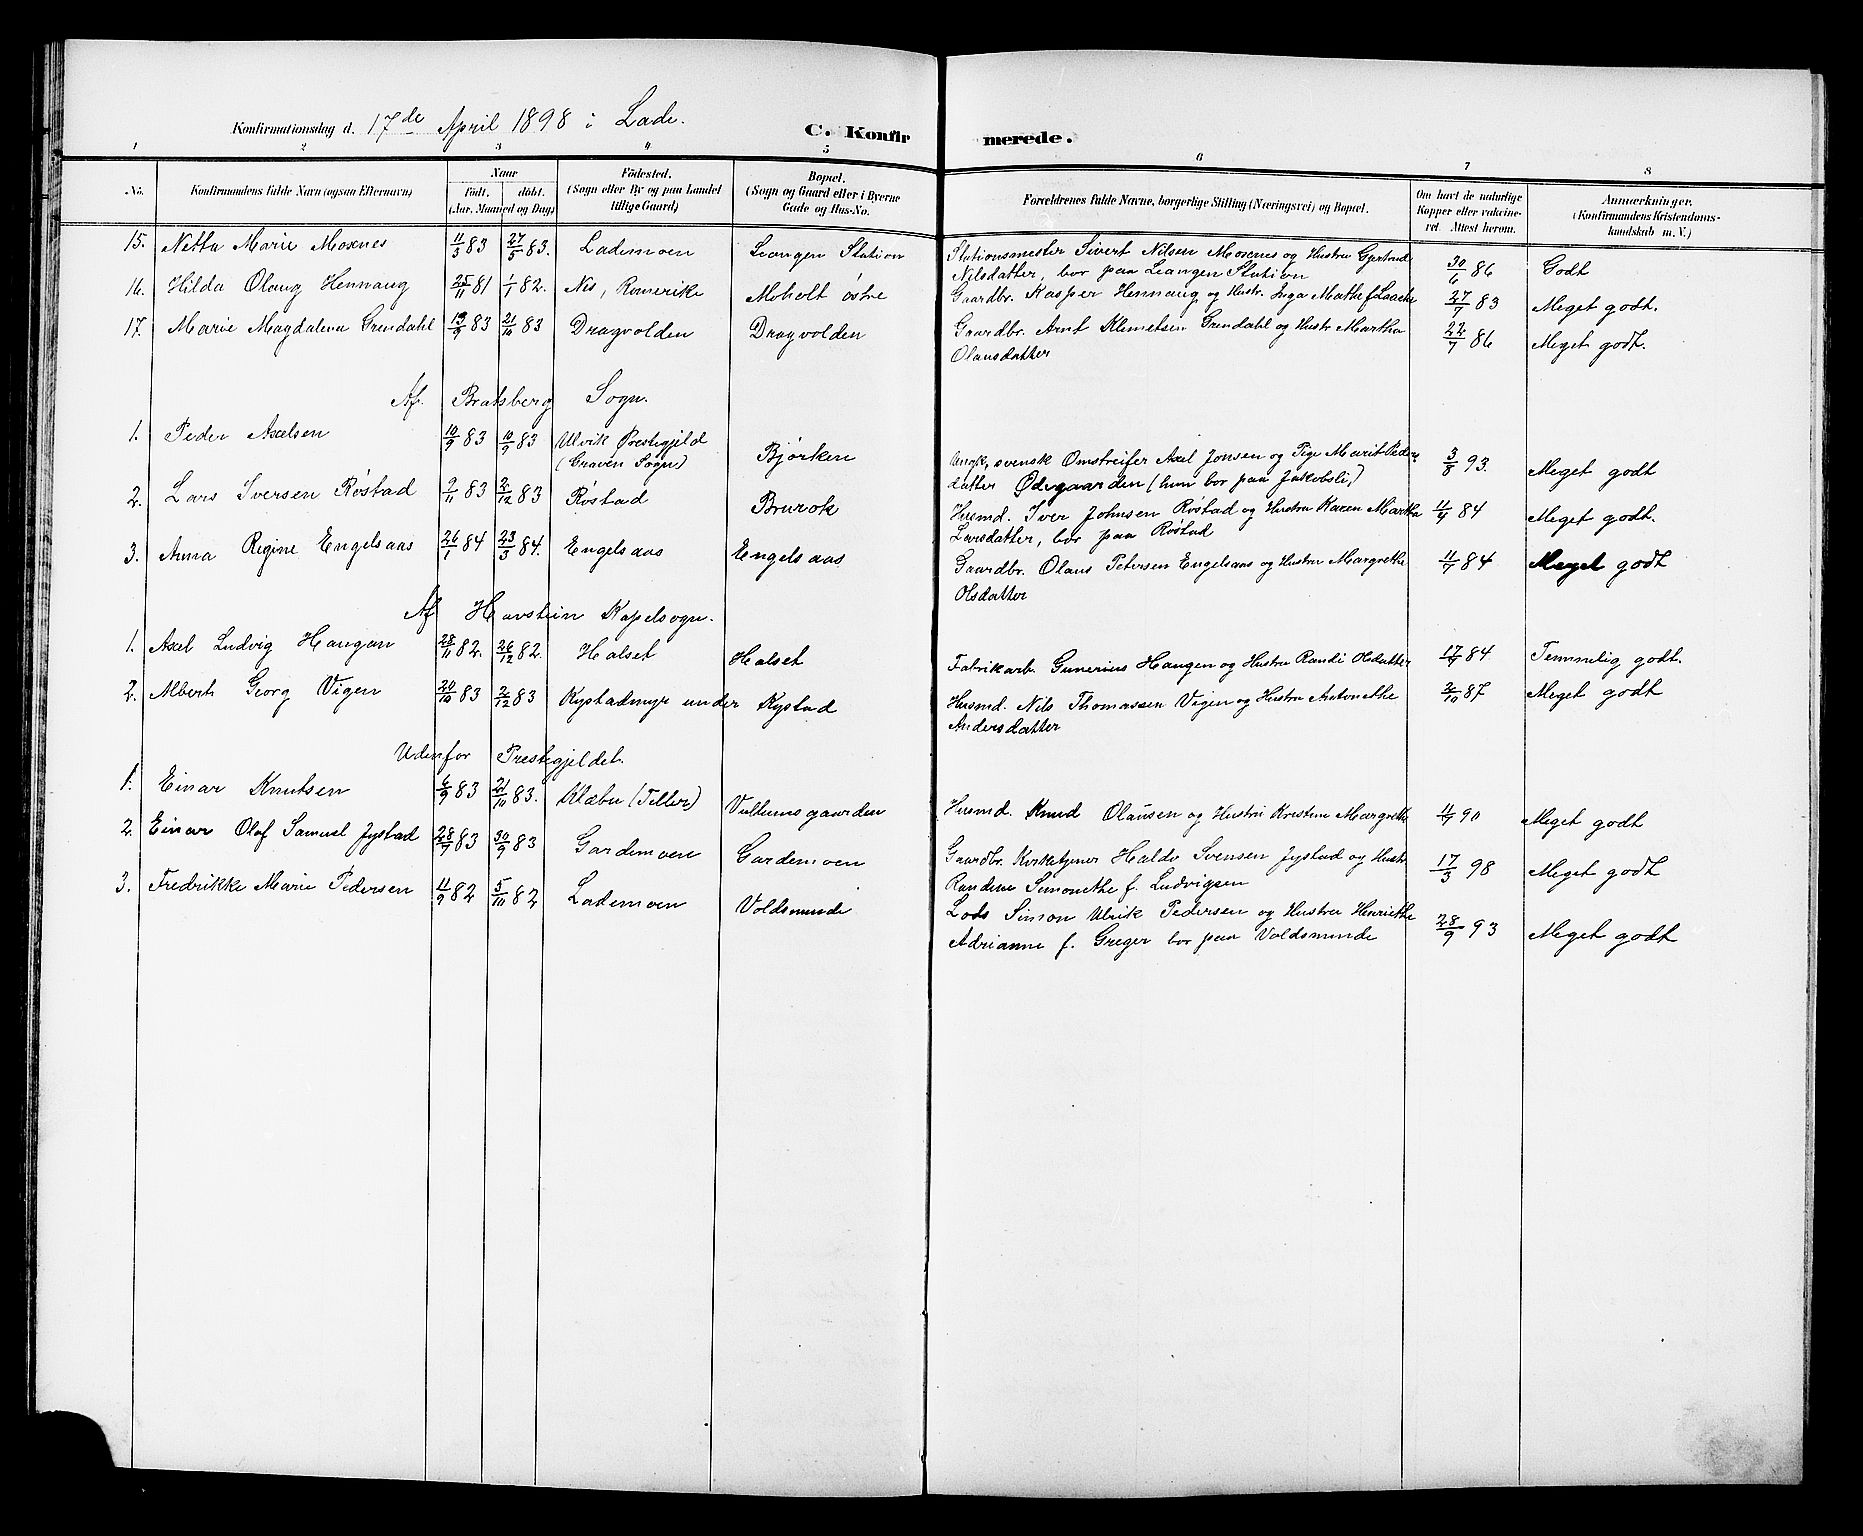 Konfirmationsdag d. 17de April 1898 i Lade.
C. Konfirmerede.
1 2 3 4 5 6 7 8
No. Konfirmandens fulde Navn (ogsaa Efternavn) Naar Födt. döbt. (Aar, Maaned og Dag) Födested. (Sogn eller By og paa Landet tillige Gaard) Bopæl. (Sogn og Gaard eller i Byerne Gade og Hus-No. Forældrenes fulde Navne, borgerlige Stilling (Næringsvei) og Bopæl. Om havt de naturlige Kopper eller vakcineret. Attest herom. Anmærkninger. (Konfirmandens Kristendomskundskab m. V.)
15. Netta Marie Moxnes 11/3 83 27/5 83. Lademoen Leangen Station Stationsmester Sivert Nilsen Moxnes og Hustru Gjertrud
Nilsdatter, bor paa Leangen Station 30/6 86 Godt
16. Hilda Olaug Hennaug 25/11 81 1/1 82. Nes, Romerike Moholt östre Gaardbr. Kasper Hennaug og Hustr. Inga Mathe f. Laache 27/7 83 Meget godt.
17. Marie Magdalena Grendahl 19/9 83 21/10 83 Dragvolden Dragvolden Gaardbr. Arnt Klemetsen Grendahl og Hustr Martha
Olausdatter 22/7 86 Meget godt.
Af Bratsberg Sogn.
1. Peder Axelsen 10/9 83 10/9 83 Ulvik Prestegjeld
(Graven Sogn) Bjørken Ungk, svensk Omstreifer Axel Jonsen og Pige Marit Peders
datter Ødegaarden (hun bor paa Jakobsli,) 3/8 93. Meget godt
2. Lars Iversen Røstad 9/11 83 2/12 83 Røstad Brurok Husmd. Iver Johnsen Røstad og Hustru Karen Martha
Larsdatter, bor paa Røstad 11/9 84 Meget godt.
3. Anna Regine Engelsaas 26/1 84 23/3 84. Engelsaas Engelsaas Gaardbr. Olaus Petersen Engelsaas og Hustru Margrethe
Olsdatter 11/9 84 Meget godt
Af Havstein Kapelsogn.
1. Axel Ludvig Haugan 28/11 82. 26/12 82. Halset Halset Fabrikarb. Gunerius Haugen og Hustru Randi Olsdatter 17/9 84 Temmelig godt.
2. Albert Georg Vigen 20/10 83 2/12 83 Kystadmyr under Kystad Husmd. Nils Thomassen Vigen og Hustru Antonethe
Andersdatter 2/10 87 Meget godt
Udenfor Prestegjeldet.
1. Einar Knutsen 6/9 83 21/10 83. Klæbu (Tiller) Vullumsgaarden Husmd. Knud Olausen og Hustru Kristine Margrethe 11/9 90 Meget godt
2. Einar Olaf Samuel Jystad 28/7 83 30/9 83 Gardemoen Gardemoen Gaardbr. Kirketjener Haldo Svensen Jystad og Hustr.
Randine Simonethe f. Ludvigsen 17/3 98 Meget godt
3. Fredrikke Marie Pedersen 11/9 82 5/10 82 Lademoen Voldsminde Lods Simon Ulrik Pedersen og Hustru Henriethe
Adrianne f. Greger bor paa Voldsminde 28/9 93 Meget godt